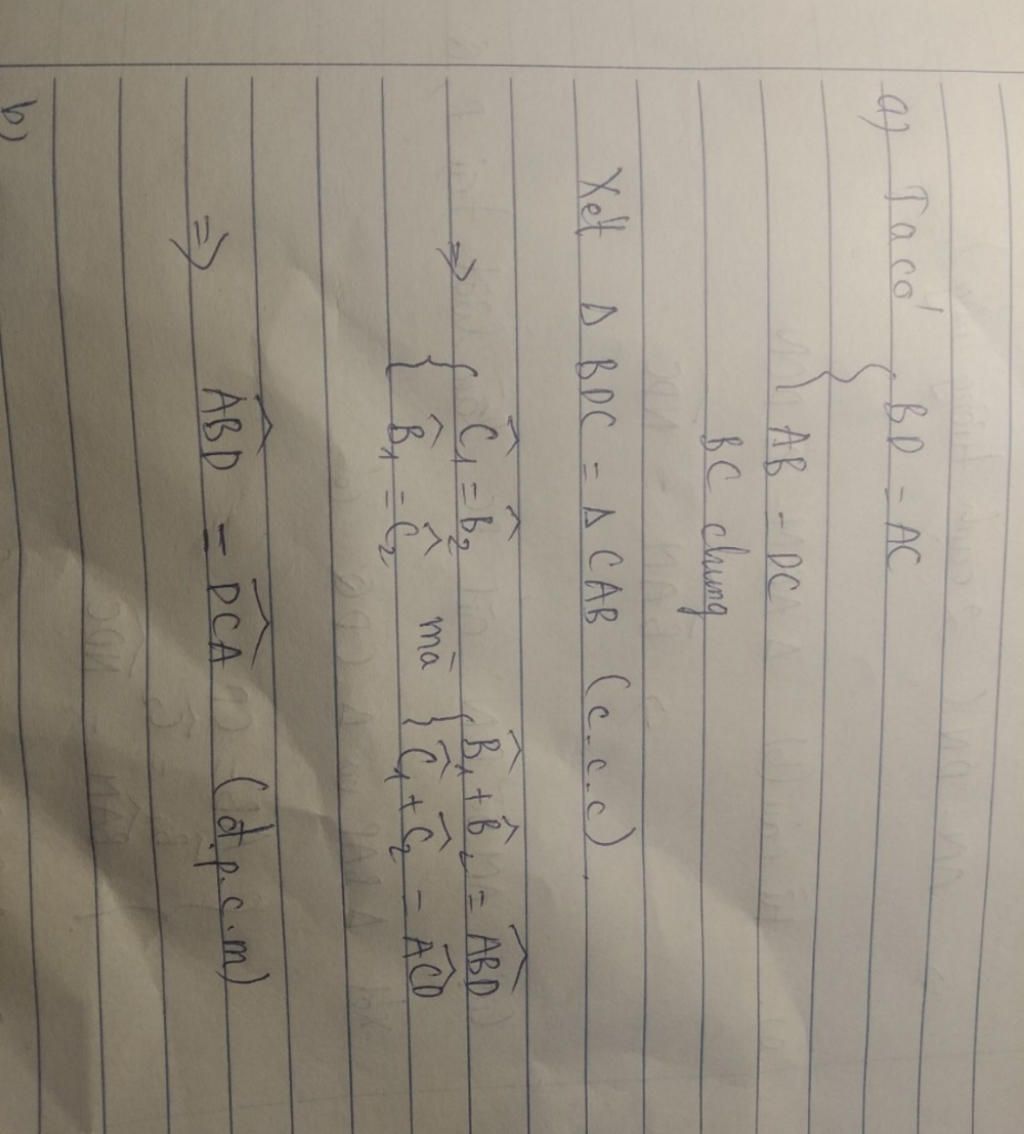 a) Ta có { BD = AC
AB = DC
BC chung
Xét Δ BDC = Δ CAB (c.c.c)
=> { Ĉ₁ = B̂₂
B̂₁ = Ĉ₂ mà { B̂₁ + B̂₂ = \widehat{ABD}
Ĉ₁ + Ĉ₂ = \widehat{ACD}
=> \widehat{ABD} = \widehat{DCA} (đ.p.c.m)
b)